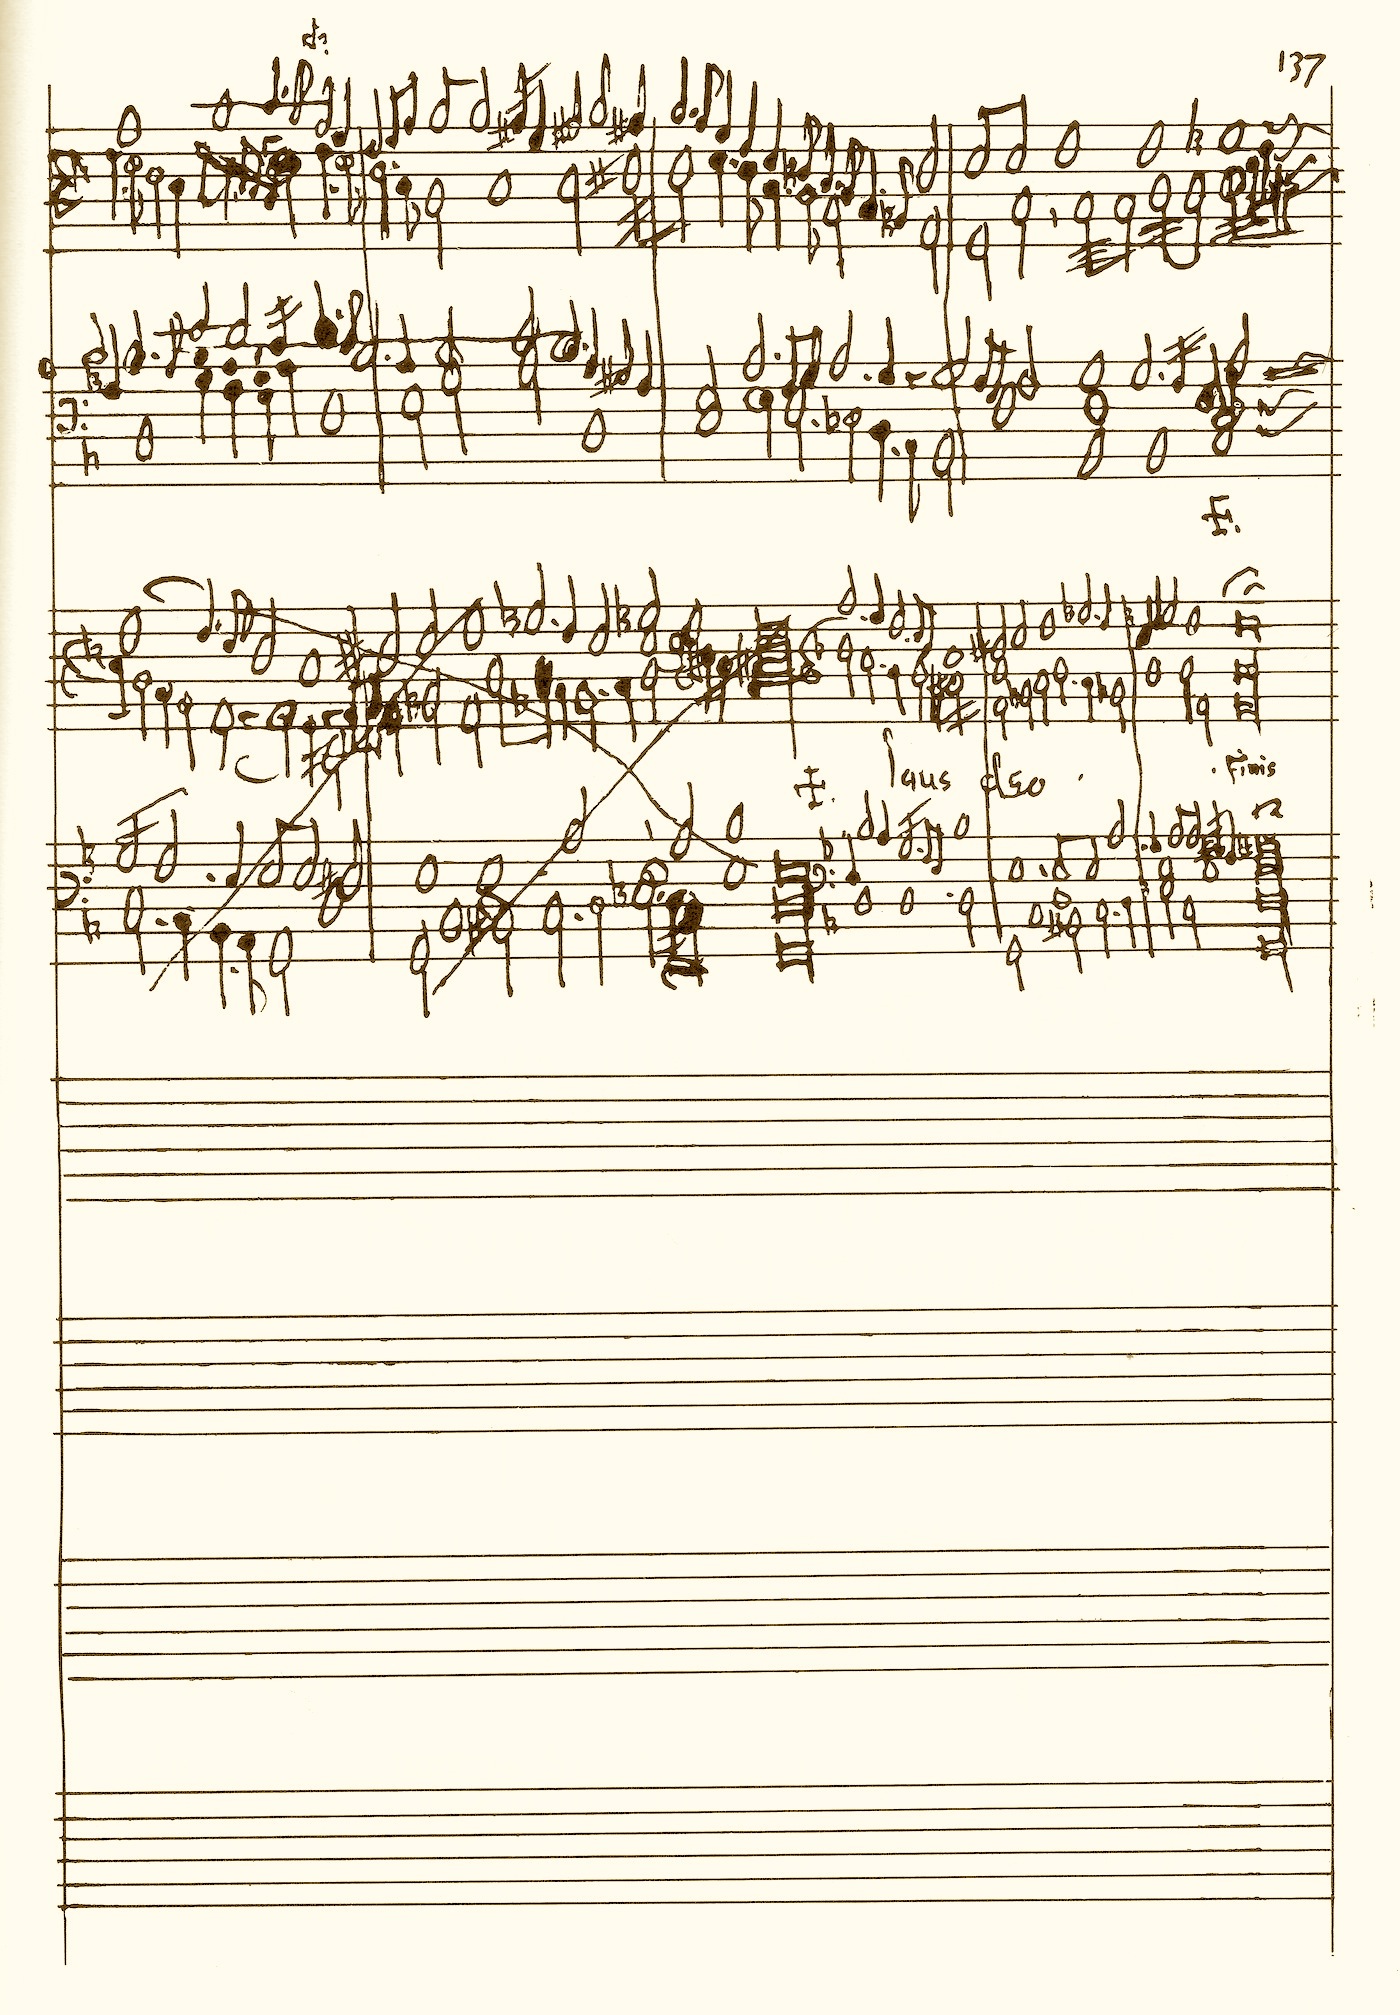 137
laus deo .
. Finis